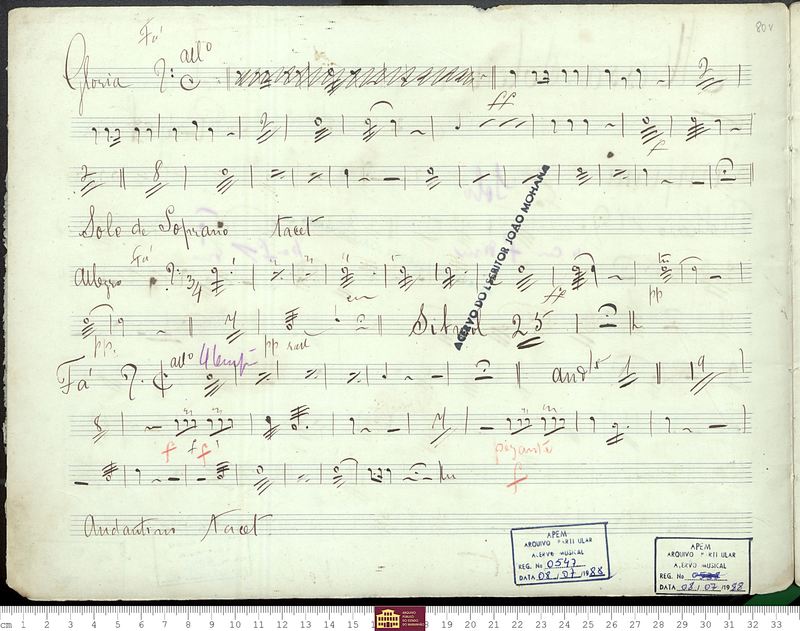 80v
Fá
Gloria all°
2
ff
2
f
2 8
Solo de Soprano tacet
Allegro Fá 3/4
pp
ff
pp. 4 pp rall 25
Fá all° 4 temp and^te 1 19
8 4
f f f pezante
f
Andantino Tacet
ACERVO DO ESCRITOR JOÃO MOHANA
APEM
ARQUIVO PARTICULAR
ACERVO MUSICAL
REG. No 0547
DATA 08 / 07 / 1988
APEM
ARQUIVO PARTICULAR
ACERVO MUSICAL
REG. No
DATA 08 / 07 / 1988
cm 1 2 3 4 5 6 7 8 9 10 11 12 13 14 15 18 19 20 21 22 23 24 25 26 27 28 29 30 31 32 33